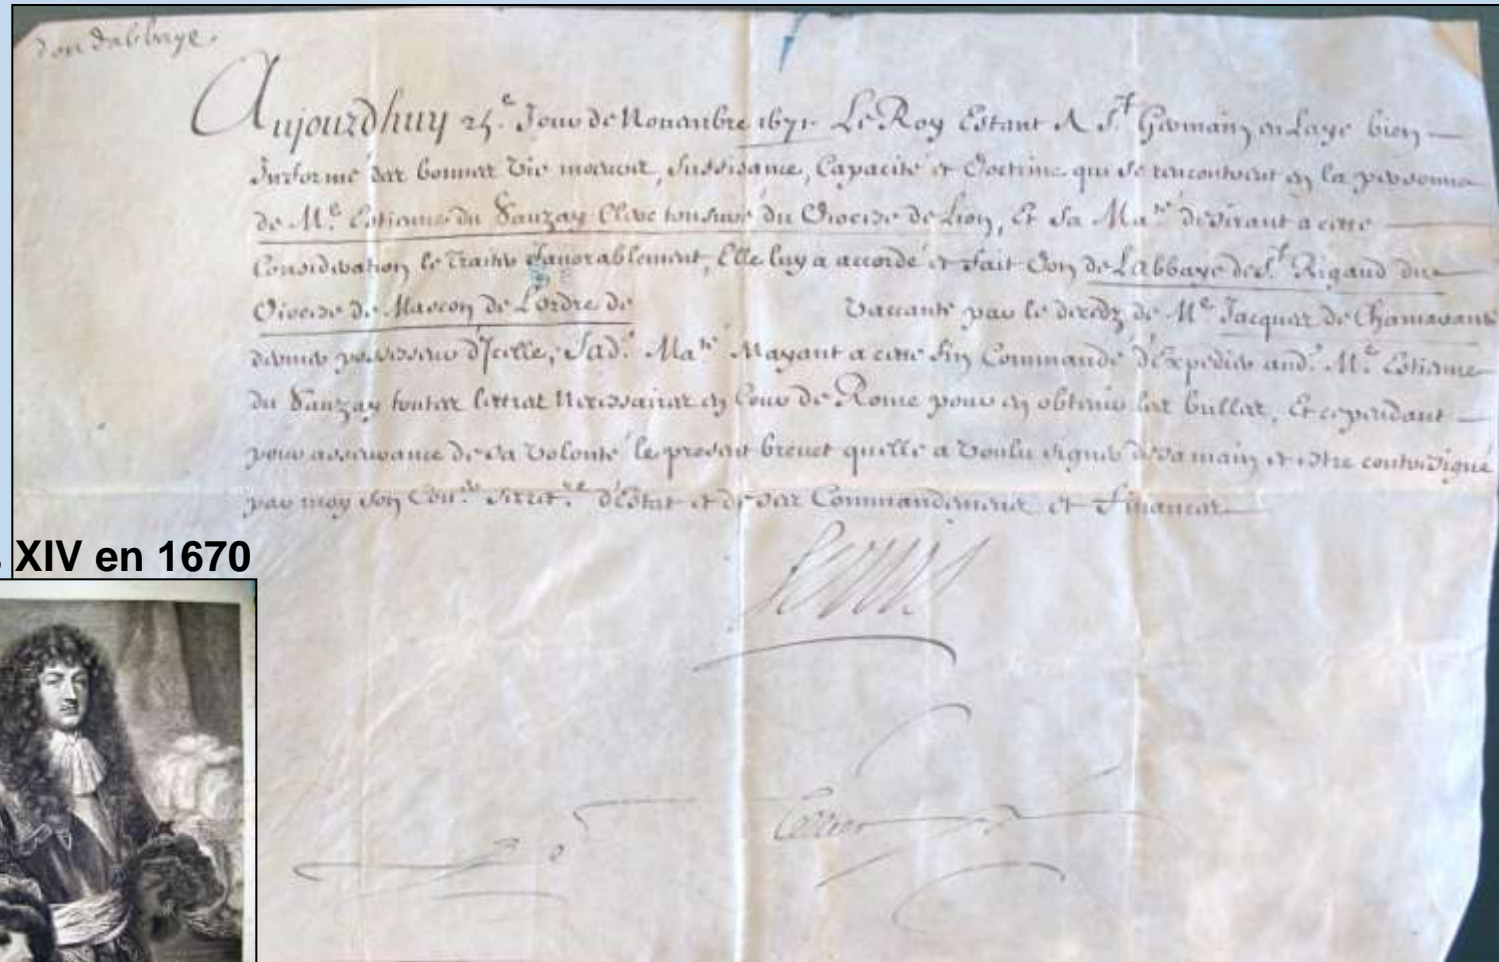 don dabbaye.
Aujourdhuy 25.e Jour de Nouembre 1671. Le Roy Estant A S.t Germain en Laye bien
Informé des bonnes vie moeurs, suffisance, Capacité et Doctrine qui se rencontrent en la personne
de M.e Estienne du Sauzay Clerc tonsuré du Diocese de Lion, Et Sa Ma.té desirant a cette
Consideration le traiter fauorablement, Elle luy a accordé et fait Don de Labbaye de S.t Rigaud du
Diocese de Mascon de L'ordre de vaccante par le decedz de M.e Jacques de
dernier possesseur d'Icelle, Sad.e Ma.té Mayant a cette fin Commandé d'Expedier aud.t M.e Estienne
du Sauzay toutes lettres Necessaires en Cour de Rome pour en obtenir les bulles, Et cependant
pour asseurance de sa volonté le present breuet quelle a voulu signer de sa main et estre contresigné
par moy son Con.er Secret.re d'Estat et de ses Commandemens et finances
Louis
XIV en 1670